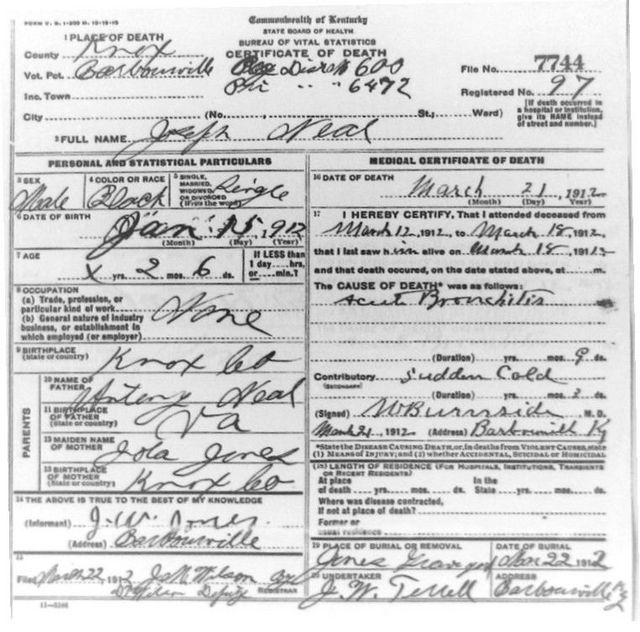 FORM V. S. 1-200 M. 10-19-15
Commonwealth of Kentucky
STATE BOARD OF HEALTH
BUREAU OF VITAL STATISTICS
CERTIFICATE OF DEATH
1 PLACE OF DEATH
County Knox
Vot. Pct. Barbourville
Reg Dist # 600
Pri " " 6472
Inc. Town
City
(No. St.; Ward)
File No. 7744
Registered No. 97
[If death occurred in a hospital or institution, give its NAME instead of street and number.]
2 FULL NAME Joseph Neal
PERSONAL AND STATISTICAL PARTICULARS
3 SEX
Male
4 COLOR OR RACE
Black
5 SINGLE, MARRIED, WIDOWED OR DIVORCED (Write the word)
Single
6 DATE OF BIRTH
Jan 15 1912
(Month) (Day) (Year)
7 AGE
X yrs. 2 mos. 6 ds.
If LESS than 1 day....hrs. or....min.?
8 OCCUPATION
(a) Trade, profession, or particular kind of work
(b) General nature of industry business, or establishment in which employed (or employer)
None
9 BIRTHPLACE
(State or country)
Knox Co
PARENTS
10 NAME OF FATHER
Antony Neal
11 BIRTHPLACE OF FATHER
(State or country)
Va
12 MAIDEN NAME OF MOTHER
Jones
13 BIRTHPLACE OF MOTHER
(State or country)
Knox Co
14 THE ABOVE IS TRUE TO THE BEST OF MY KNOWLEDGE
(Informant) J.W. Jones
(Address) Barbourville
15
Filed March 22, 1912 Jas. M. Wilson
Wilson Deputy REGISTRAR
11-3246
MEDICAL CERTIFICATE OF DEATH
16 DATE OF DEATH
March 21, 1912
(Month) (Day) (Year)
17 I HEREBY CERTIFY, That I attended deceased from
March 12, 1912, to March 18, 1912,
that I last saw him alive on March 18, 1912
and that death occured, on the date stated above, at m.
The CAUSE OF DEATH* was as follows:
Acute Bronchitis
(Duration) yrs. mos. 9 ds.
Contributory Sudden Cold
(SECONDARY)
(Duration) yrs. mos. 2 ds.
(Signed) W Burnside M. D.
March 21, 1912 (Address) Barbourville Ky
*State the DISEASE CAUSING DEATH, or, in deaths from VIOLENT CAUSES, state (1) MEANS OF INJURY; and (2) whether ACCIDENTAL, SUICIDAL or HOMICIDAL
18 LENGTH OF RESIDENCE (FOR HOSPITALS, INSTITUTIONS, TRANSIENTS OR RECENT RESIDENTS)
At place of death yrs. mos. ds. In the State yrs. mos. ds.
Where was disease contracted,
If not at place of death?
Former or
usual residence
19 PLACE OF BURIAL OR REMOVAL
Jones Graveyard
DATE OF BURIAL
Mar 22 1912
20 UNDERTAKER
J. W. Terrell
ADDRESS
Barbourville Ky